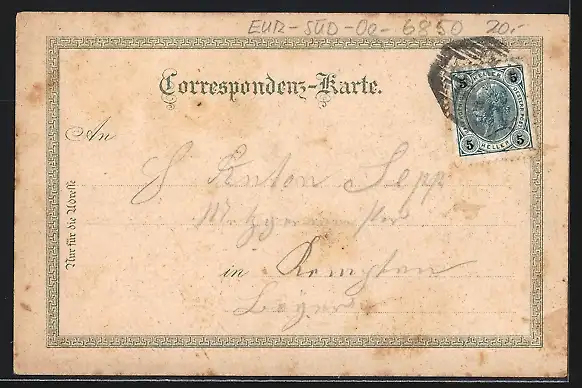 EUR-SÜD-Oo-6850 20.-
Correspondenz-Karte.
5 HELLER 5
5 HELLER 5
An
Nur für die Adresse
Anton Sepp
Metzgermeister
in Kempten
Bayern